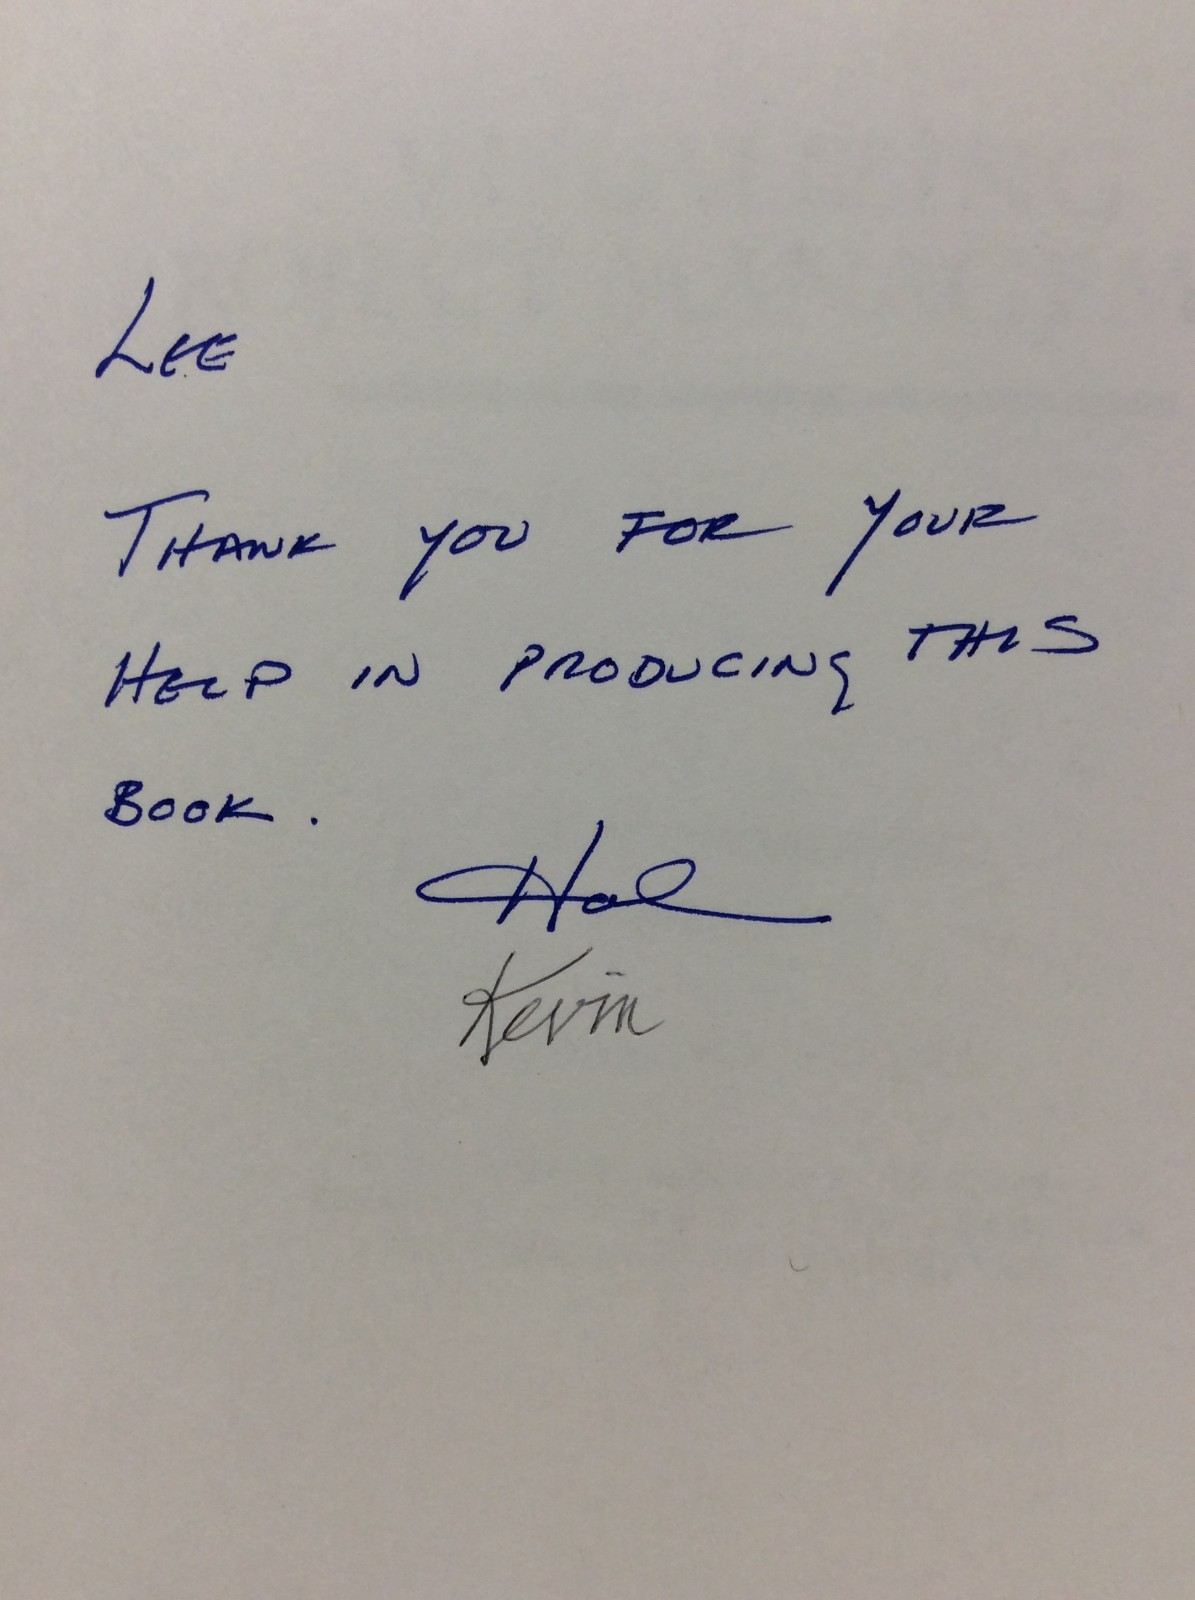 LEE
THANK YOU FOR YOUR
HELP IN PRODUCING THIS
BOOK.
Hal
Kevin